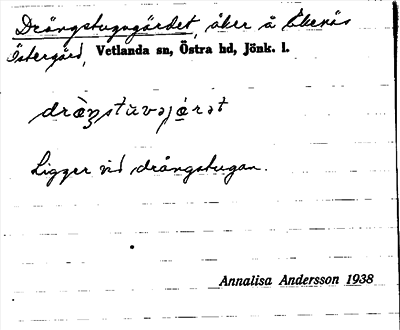 Drängstugugärdet, åker å Ekenäs
Östergård, Vetlanda sn, Östra hd, Jönk. l.
Ligger vid drängstugan.
Annalisa Andersson 1938